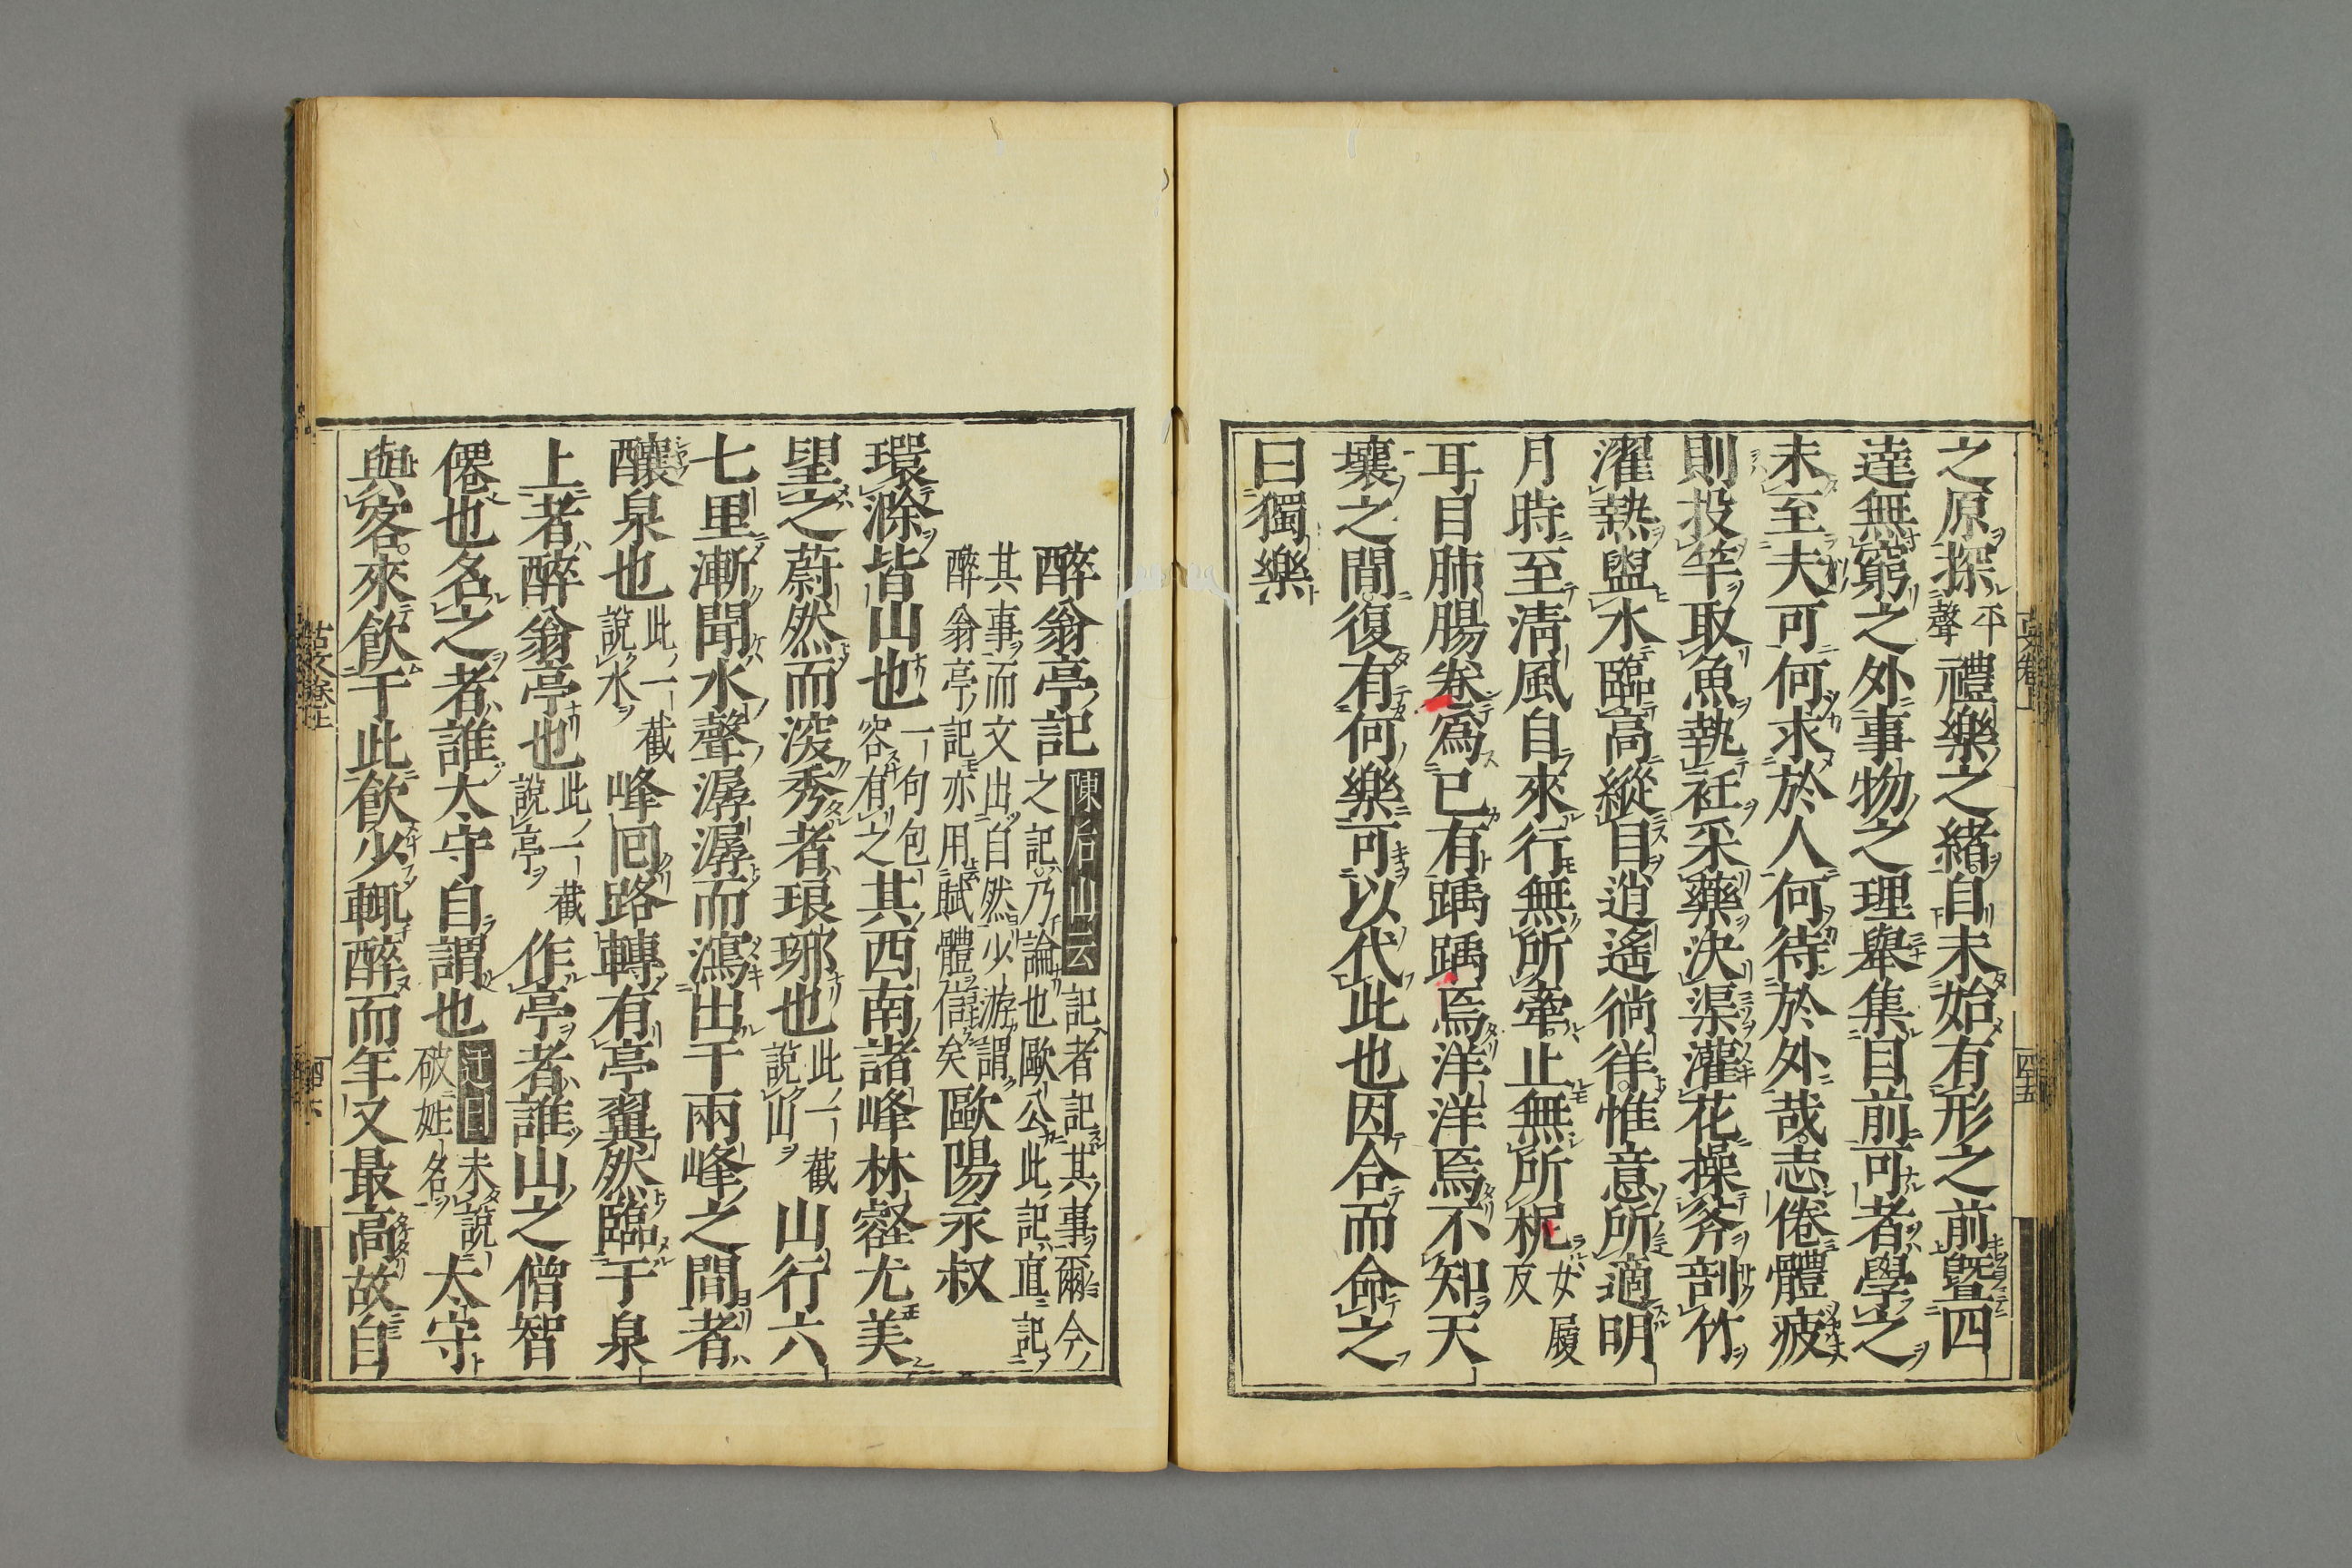 之原探平聲禮樂之緒自未始有形之前曁四
達無窮之外事物之理舉集目前可者學之
未至夫可何求於人何待於外哉志倦體疲
則投竿取魚執衽采藥決渠灌花操斧剖竹
濯熱盥水臨高縱目逍遙徜徉惟意所適明
月時至淸風自來行無所牽止無所柅女履反
耳目肺腸卷爲已有踽踽焉洋洋焉不知天
壤之間復有何樂可以代此也因合而命之
曰獨樂
醉翁亭記陳后山云記者記其事爾今之記乃論也歐公此記直記
其事而文出自然少游謂醉翁亭記亦用賦體信矣歐陽永叔
環滁皆山也一句包容有之其西南諸峰林壑尤美
望之蔚然而深秀者琅琊也此一截說山山行六
七里漸聞水聲潺潺而瀉出于兩峰之間者
釀泉也此一截說水峰回路轉有亭翼然臨于泉
上者醉翁亭也此一截說亭作亭者誰山之僧智
僊也名之者誰太守自謂也迂齋未說破姓名太守
與客來飮于此飮少輒醉而年又最高故自